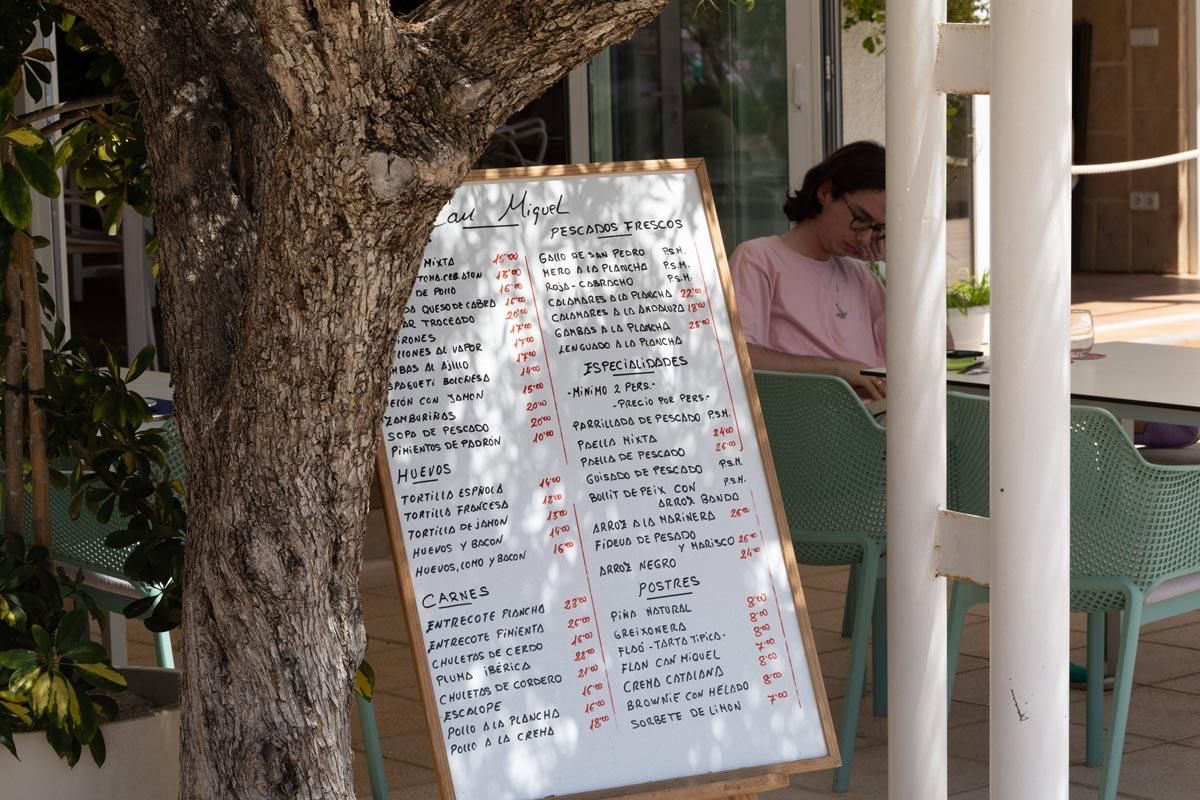 Can Miquel
MIXTA 15'00
TOMA.CEB.ATUN 13'00
DE POLLO 16'00
DA QUESO DE CABRA 16'00
AR TROCEADO 20'00
17'00
IONES AL VAPOR 17'00
MBAS AL AJILLO 17'00
SPAGUETI BOLOÑESA 14'00
ELÓN CON JAMON 15'00
ZAMBURIÑAS 20'00
SOPA DE PESCADO 20'00
PIMIENTOS DE PADRÓN 10'00
HUEVOS
TORTILLA ESPAÑOLA 14'00
TORTILLA FRANCESA 12'00
TORTILLA DE JAMON 13'00
HUEVOS Y BACON 14'00
HUEVOS, LOMO Y BACON 16'00
CARNES
ENTRECOTE PLANCHA 23'00
ENTRECOTE PIMIENTA 25'00
CHULETAS DE CERDO 16'00
PLUMA IBÉRICA 22'00
CHULETAS DE CORDERO 21'00
ESCALOPE 16'00
POLLO A LA PLANCHA 16'00
POLLO A LA CREMA 18'00
PESCADOS FRESCOS
GALLO DE SAN PEDRO P.S.M.
MERO A LA PLANCHA P.S.M.
ROJA - CABRACHO P.S.M.
CALAMARES A LA PLANCHA 22'00
CALAMARES A LA ANDALUZA 18'00
GAMBAS A LA PLANCHA 25'00
LENGUADO A LA PLANCHA
ESPECIALIDADES
-MINIMO 2 PERS.-
-PRECIO POR PERS.-
PARRILLADA DE PESCADO P.S.M.
PAELLA MIXTA 24'00
PAELLA DE PESCADO 26'00
GUISADO DE PESCADO P.S.M.
BULLIT DE PEIX CON P.S.M.
ARROZ BANDA
ARROZ A LA MARINERA 26'00
FIDEUA DE PESADO
Y MARISCO 26'00
ARROZ NEGRO 24'00
POSTRES
PIÑA NATURAL 8'00
GREIXONERA 8'00
FLAÓ - TARTA TIPICA- 8'00
FLAN CAN MIQUEL 7'00
CREMA CATALANA 8'00
BROWNIE CON HELADO 8'00
SORBETE DE LIMON 7'00